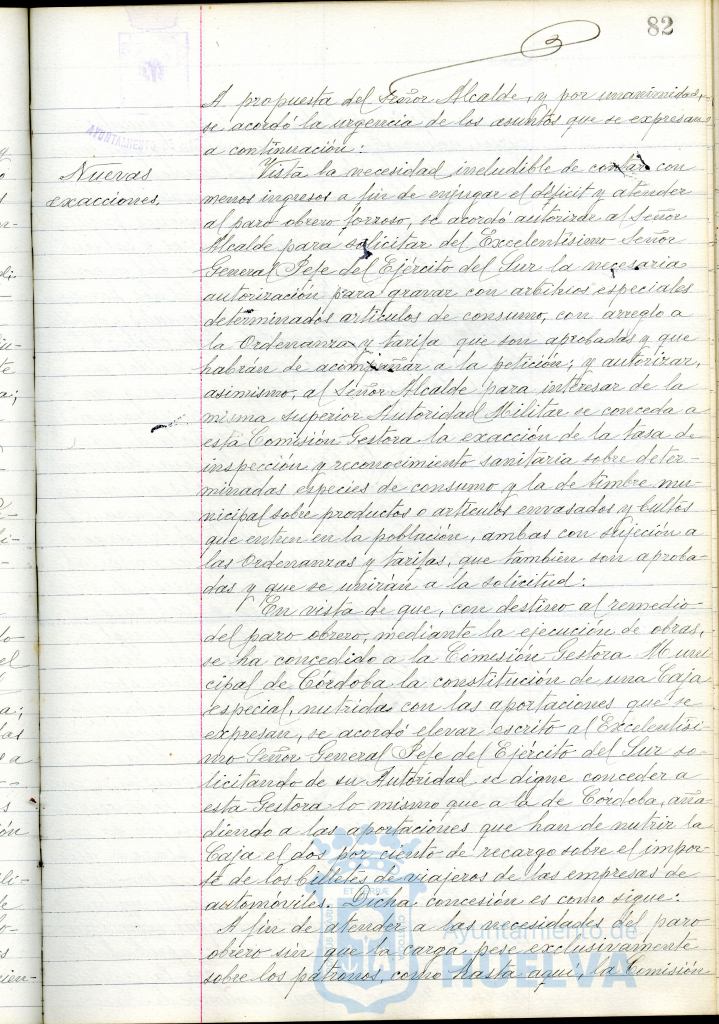 82
AYUNTAMIENTO DE
A propuesta del Señor Alcalde, y por unanimidad,
se acordó la urgencia de los asuntos que se expresan
a continuación:
Nuevas
exacciones.
Vista la necesidad ineludible de contar con
menos ingresos a fin de enjugar el déficit y atender
al paro obrero forzoso, se acordó autorizar al Señor
Alcalde para solicitar del Excelentísimo Señor
General Jefe del Ejército del Sur la necesaria
autorización para gravar con arbitrios especiales
determinados artículos de consumo, con arreglo a
la Ordenanza y tarifa que son aprobadas y que
habrán de acompañar a la petición; y autorizar,
asimismo, al Señor Alcalde para interesar de la
misma superior Autoridad Militar se conceda a
esta Comisión Gestora la exacción de la tasa de
inspección y reconocimiento sanitaria sobre deter-
minadas especies de consumo y la de timbre mu-
nicipal sobre productos o artículos envasados y bultos
que entren en la población, ambas con sujeción a
las Ordenanzas y tarifas, que también son aproba-
das y que se unirán a la solicitud:
En vista de que, con destino al remedio
del paro obrero, mediante la ejecución de obras,
se ha concedido a la Comisión Gestora Muni
cipal de Córdoba la constitución de una Caja
especial, nutrida con las aportaciones que se
expresan, se acordó elevar escrito al Excelentísi-
mo Señor General Jefe del Ejército del Sur so-
licitando de su Autoridad se digne conceder a
esta Gestora lo mismo que a la de Córdoba, aña
diendo a las aportaciones que han de nutrir la
Caja el dos por ciento de recargo sobre el impor-
te de los billetes de viajeros de las empresas de
automóviles. Dicha concesión es como sigue:
A fin de atender a las necesidades del paro
obrero sin que la carga pese exclusivamente
sobre los patronos, como hasta aquí, la Comisión
Ayuntamiento de
HUELVA